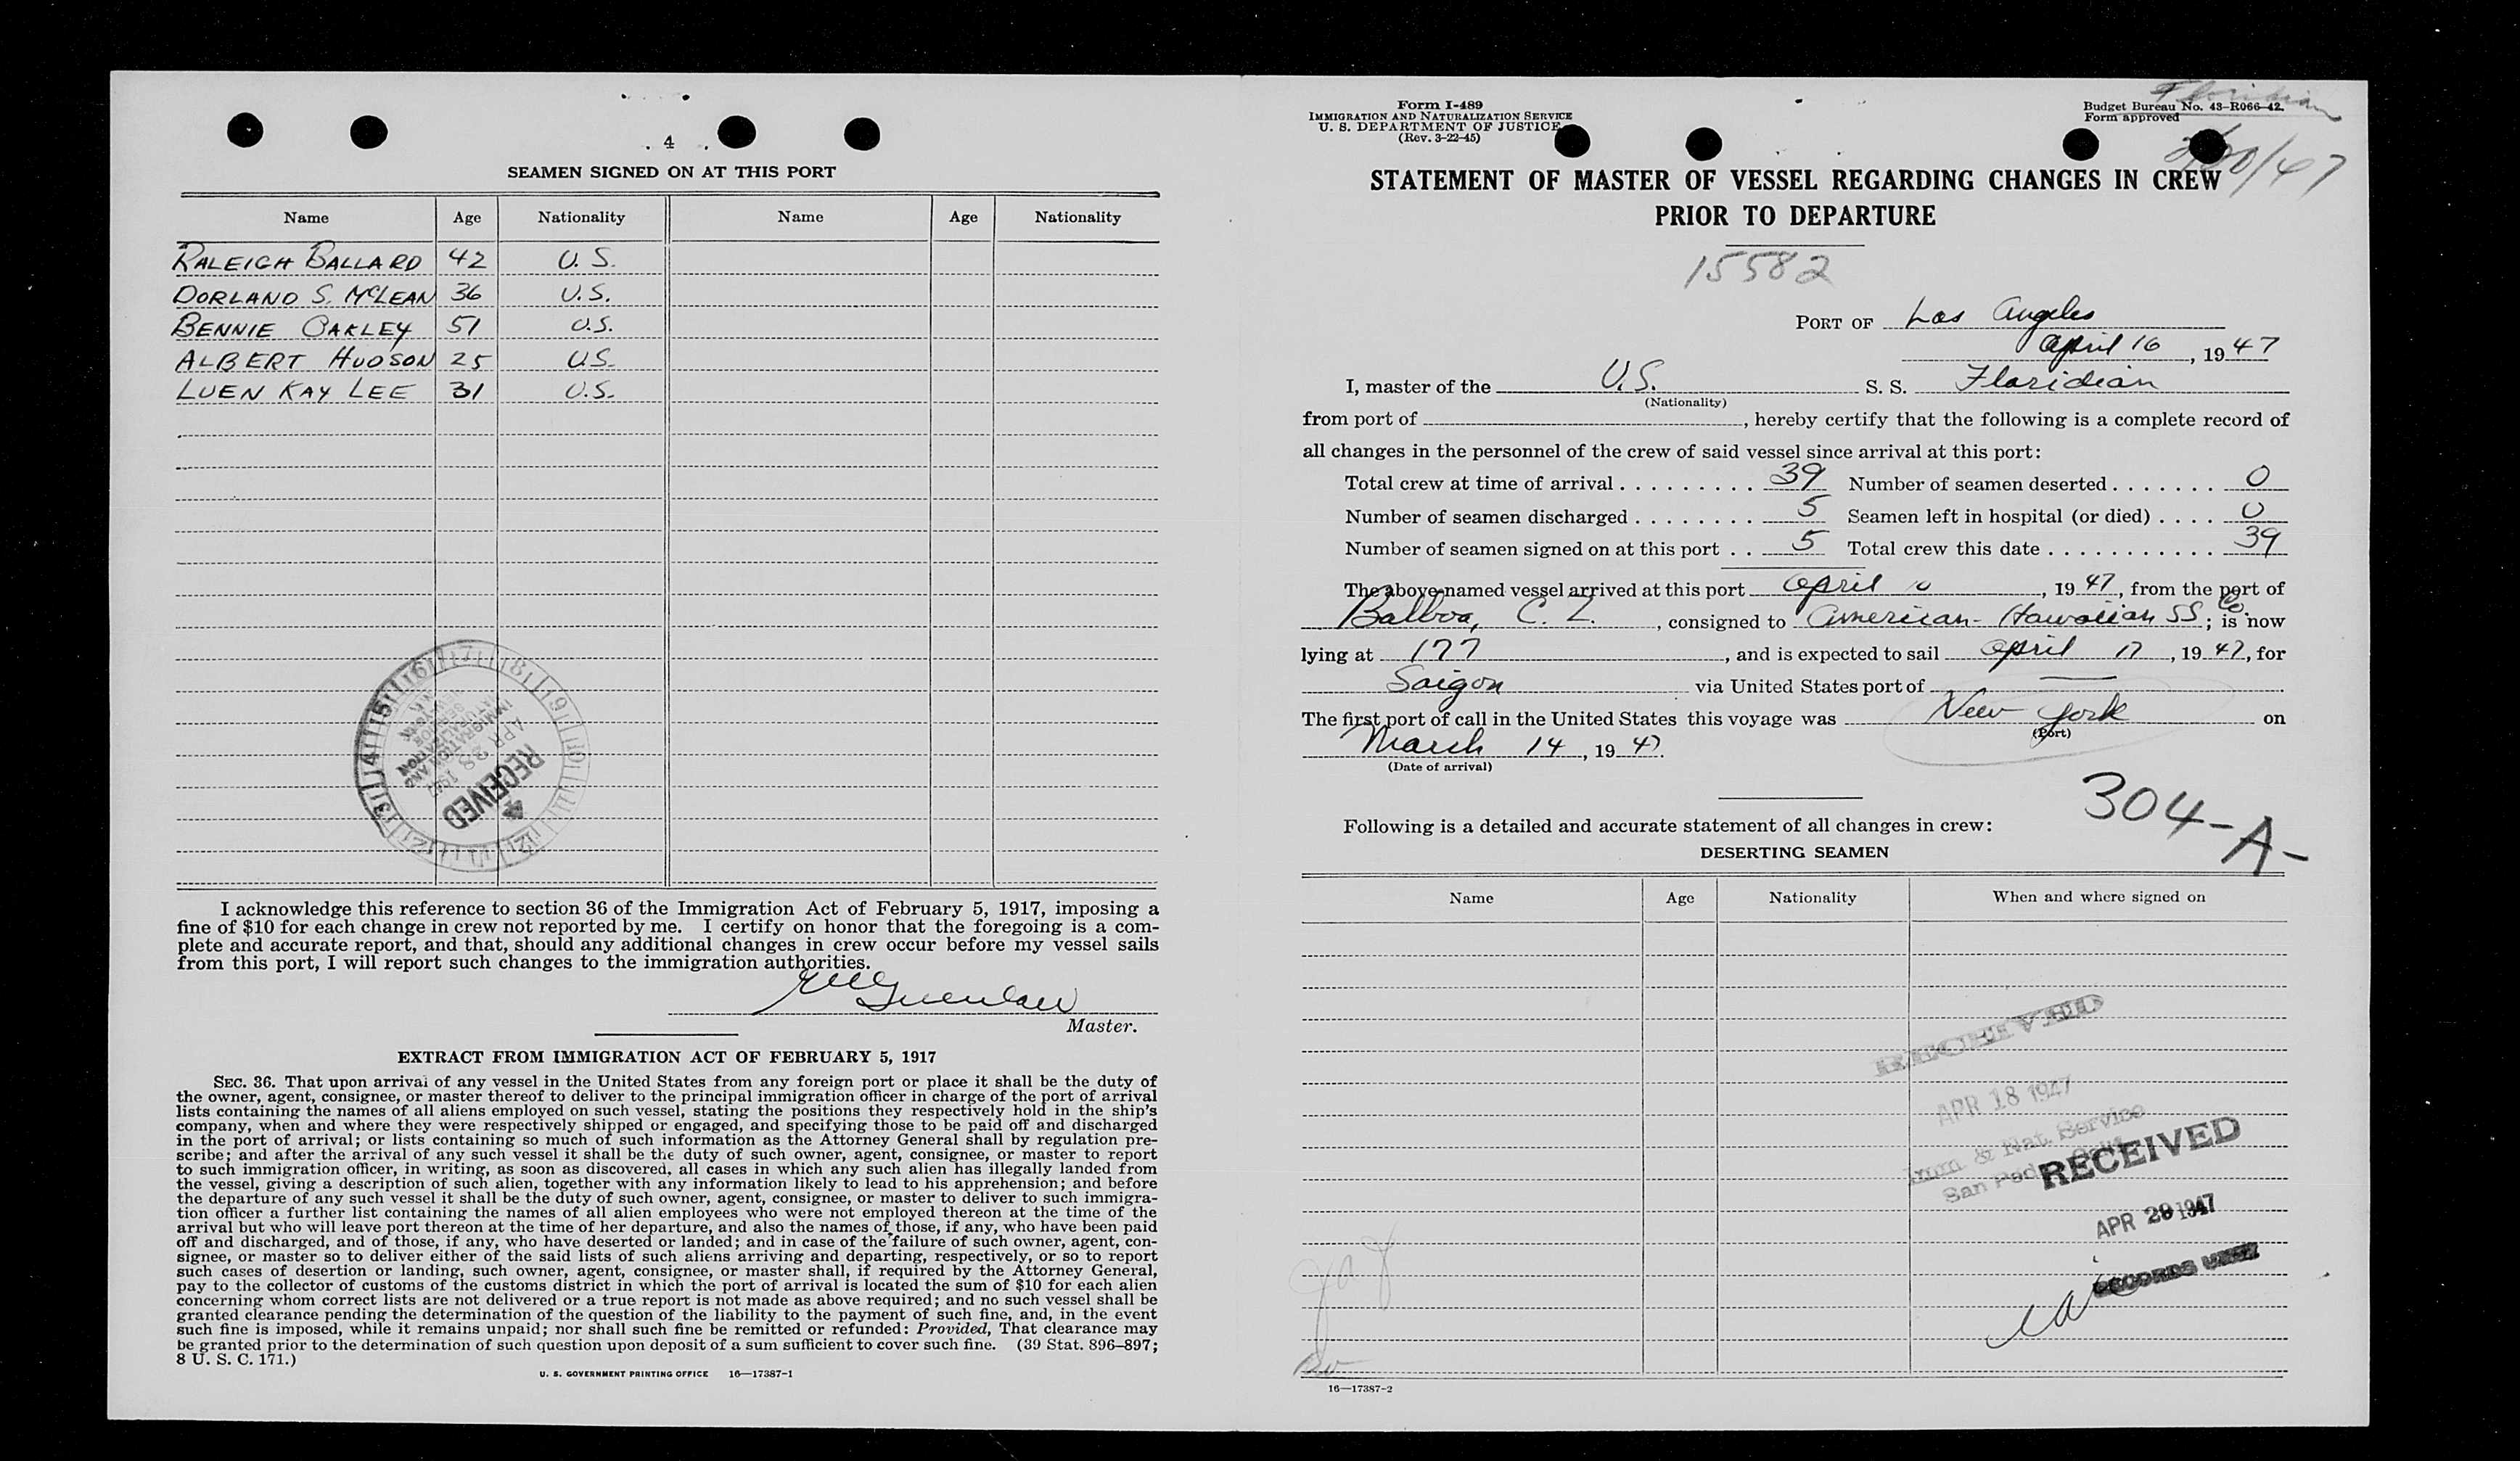 4
SEAMEN SIGNED ON AT THIS PORT
Name Age Nationality Name Age Nationality
RALEIGH BALLARD 42 U. S.
DORLAND S. McLEAN 36 U.S.
BENNIE OAKLEY 51 U.S.
ALBERT HUDSON 25 U.S.
LUEN KAY LEE 31 U.S.
RECEIVED
APR 28 194
IMMIGRATION AND
I acknowledge this reference to section 36 of the Immigration Act of February 5, 1917, imposing a
fine of $10 for each change in crew not reported by me. I certify on honor that the foregoing is a com-
plete and accurate report, and that, should any additional changes in crew occur before my vessel sails
from this port, I will report such changes to the immigration authorities.
Master.
EXTRACT FROM IMMIGRATION ACT OF FEBRUARY 5, 1917
SEC. 36. That upon arrival of any vessel in the United States from any foreign port or place it shall be the duty of
the owner, agent, consignee, or master thereof to deliver to the principal immigration officer in charge of the port of arrival
lists containing the names of all aliens employed on such vessel, stating the positions they respectively hold in the ship's
company, when and where they were respectively shipped or engaged, and specifying those to be paid off and discharged
in the port of arrival; or lists containing so much of such information as the Attorney General shall by regulation pre-
scribe; and after the arrival of any such vessel it shall be the duty of such owner, agent, consignee, or master to report
to such immigration officer, in writing, as soon as discovered, all cases in which any such alien has illegally landed from
the vessel, giving a description of such alien, together with any information likely to lead to his apprehension; and before
the departure of any such vessel it shall be the duty of such owner, agent, consignee, or master to deliver to such immigra-
tion officer a further list containing the names of all alien employees who were not employed thereon at the time of the
arrival but who will leave port thereon at the time of her departure, and also the names of those, if any, who have been paid
off and discharged, and of those, if any, who have deserted or landed; and in case of the failure of such owner, agent, con-
signee, or master so to deliver either of the said lists of such aliens arriving and departing, respectively, or so to report
such cases of desertion or landing, such owner, agent, consignee, or master shall, if required by the Attorney General,
pay to the collector of customs of the customs district in which the port of arrival is located the sum of $10 for each alien
concerning whom correct lists are not delivered or a true report is not made as above required; and no such vessel shall be
granted clearance pending the determination of the question of the liability to the payment of such fine, and, in the event
such fine is imposed, while it remains unpaid; nor shall such fine be remitted or refunded: Provided, That clearance may
be granted prior to the determination of such question upon deposit of a sum sufficient to cover such fine. (39 Stat. 896–897;
8 U. S. C. 171.)
U. S. GOVERNMENT PRINTING OFFICE 16—17387-1
Form I-489
IMMIGRATION AND NATURALIZATION SERVICE
U. S. DEPARTMENT OF JUSTICE
(Rev. 3-22-45)
Floridian
Budget Bureau No. 43-R066-42.
Form approved
STATEMENT OF MASTER OF VESSEL REGARDING CHANGES IN CREW
PRIOR TO DEPARTURE
15582
PORT OF Los Angeles
April 16, 1947
I, master of the U.S. S. S. Floridian
(Nationality)
from port of , hereby certify that the following is a complete record of
all changes in the personnel of the crew of said vessel since arrival at this port:
Total crew at time of arrival 39 Number of seamen deserted 0
Number of seamen discharged 5 Seamen left in hospital (or died) 0
Number of seamen signed on at this port 5 Total crew this date 39
The above-named vessel arrived at this port April 10, 1947, from the port of
Balboa, C. Z., consigned to American-Hawaiian SS Co.; is now
lying at 177, and is expected to sail April 17, 1947, for
Saigon via United States port of —
The first port of call in the United States this voyage was New York on
(Port)
March 14, 1947.
(Date of arrival)
304-A-
Following is a detailed and accurate statement of all changes in crew:
DESERTING SEAMEN
Name Age Nationality When and where signed on
RECEIVED
APR 18 1947
Imm. & Nat. Service
San Pedro, Calif.
RECEIVED
APR 29 1947
RECORDS UNIT
16—17387-2